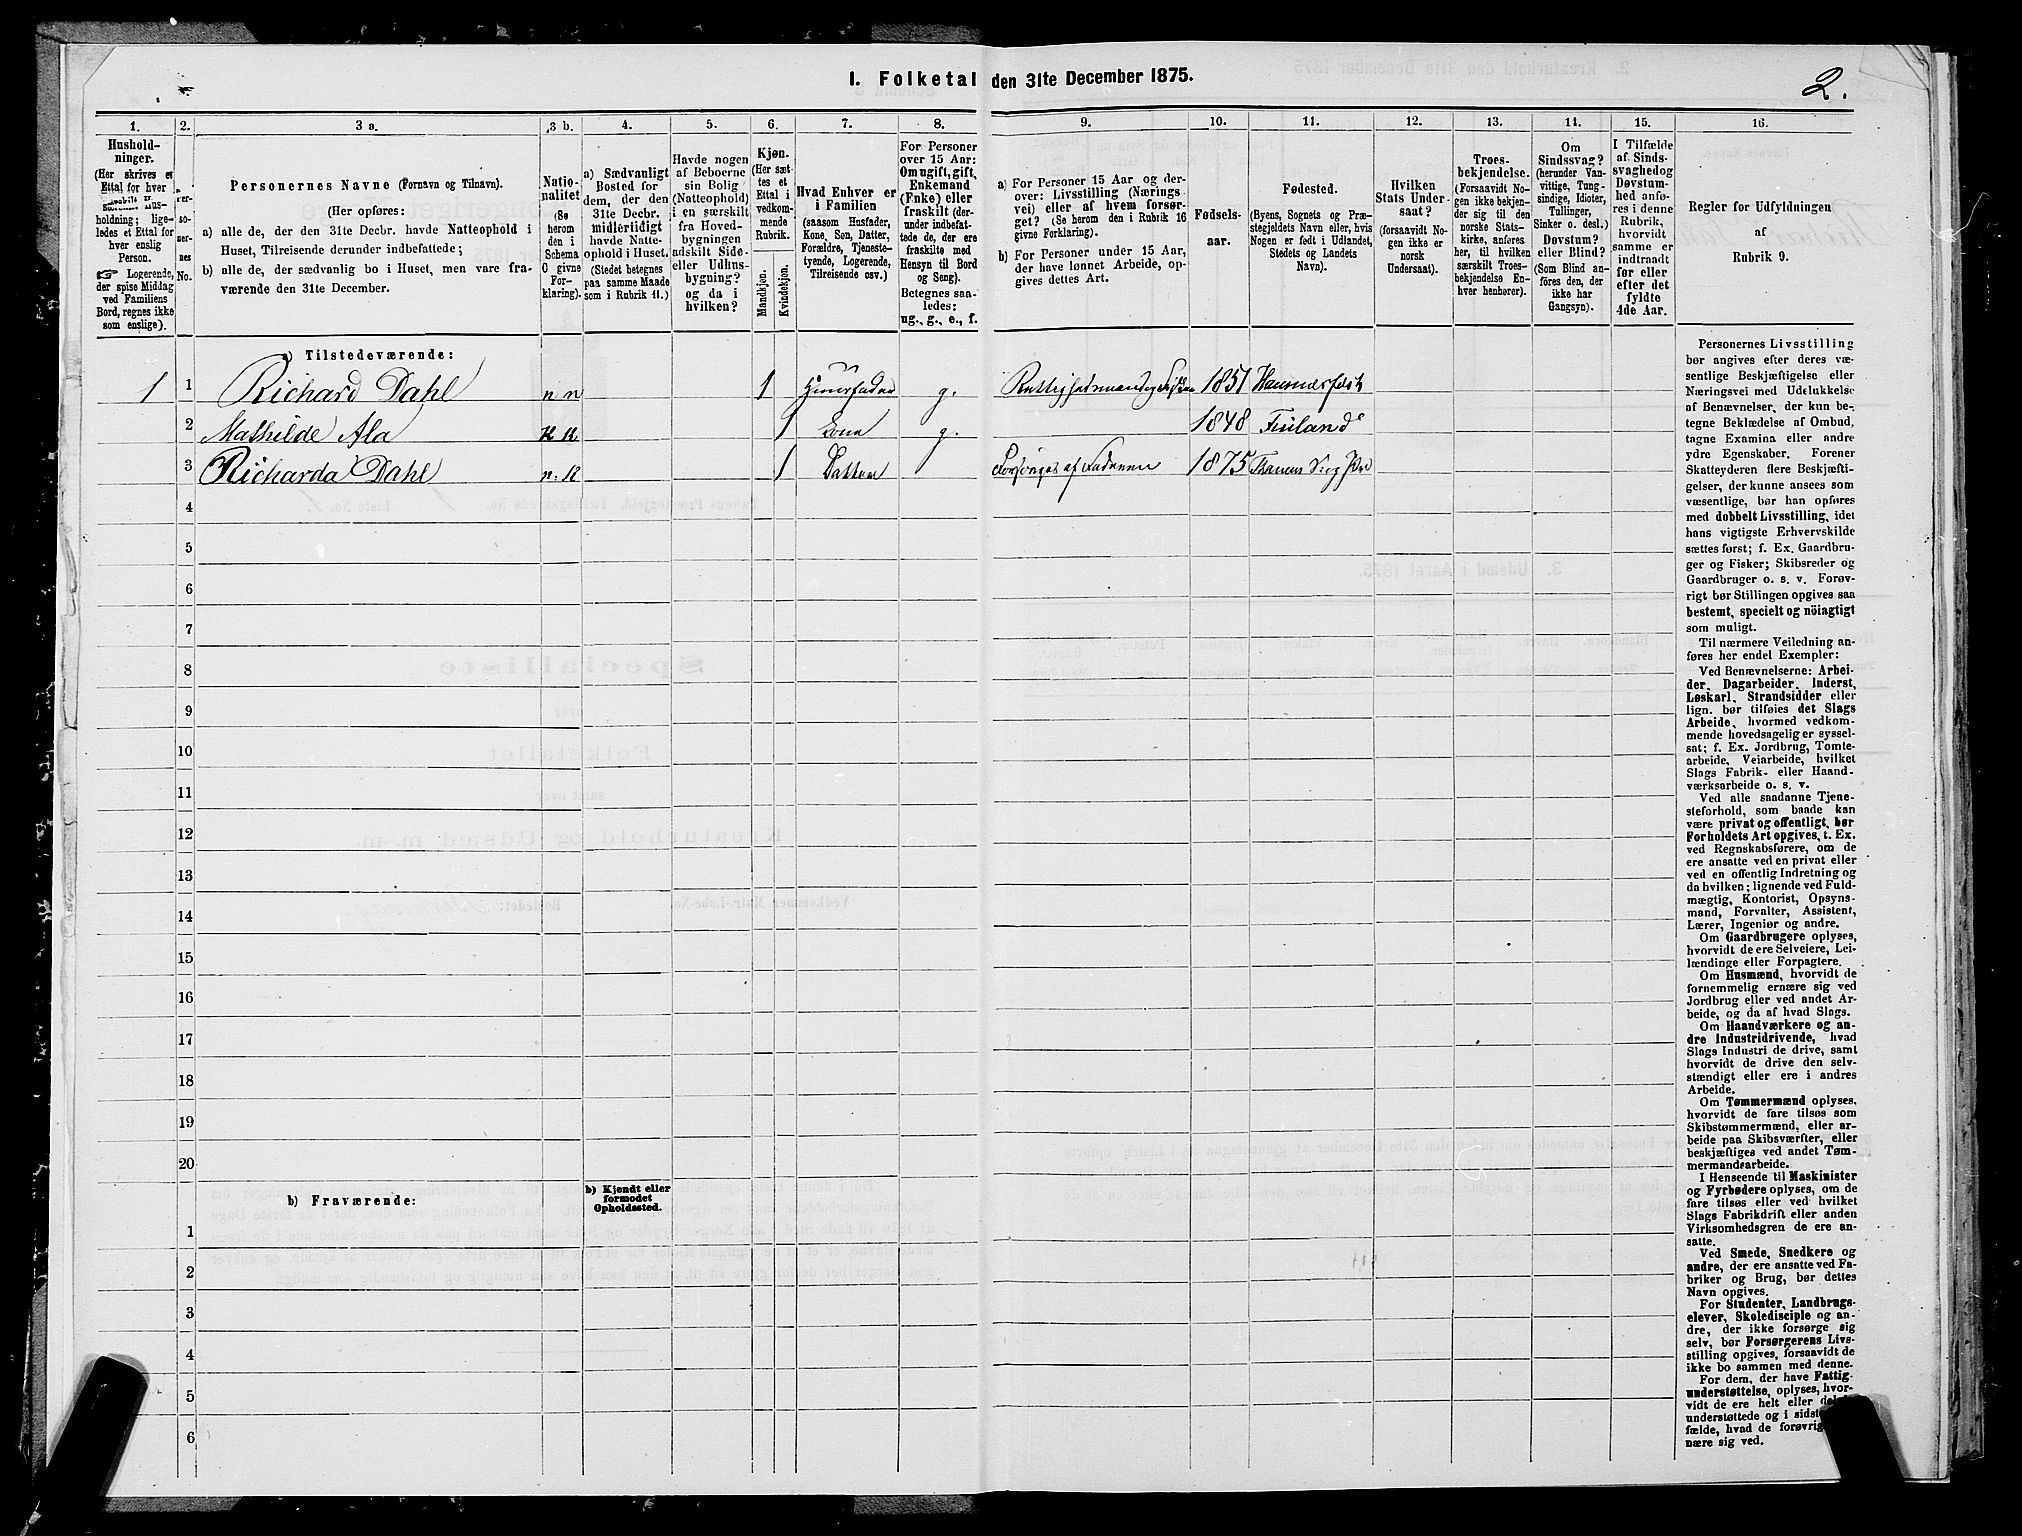 I. Folketal den 31te December 1875.
2.
1.
2.
3 a.
3 b.
4.
5.
6.
7.
8.
9.
10.
11.
12.
13.
14.
15.
16.
Hushold-
ninger.
(Her skrives et
Ettal for hver
Hus-
holdning; lige-
ledes et Ettal for
hver enslig
Person.
☞ Logerende,
der spise Middag
ved Familiens
Bord, regnes ikke
som enslige).
Per-
so-
ner-
nes
No.
Personernes Navne (Fornavn og Tilnavn).
(Her opføres:
a) alle de, der den 31te Decbr. havde Natteophold i
Huset, Tilreisende derunder indbefattede;
b) alle de, der sædvanlig bo i Huset, men vare fra-
værende den 31te December.
Natio-
nalitet
(Se
herom
den i
Schema
C givne
For-
klaring).
a) Sædvanligt
Bosted for
dem, der den
31te Decbr.
midlertidigt
havde Natte-
ophold i Huset.
(Stedet betegnes
paa samme Maade
som i Rubrik 11.)
Havde nogen
af Beboerne
sin Bolig
(Natteophold)
i en særskilt
fra Hoved-
bygningen
adskilt Side-
eller Udhus-
bygning?
og da i
hvilken?
Kjøn.
(Her sæt-
tes et
Ettal i
vedkom-
mende
Rubrik.
Mandkjøn.
Kvindekjøn.
Hvad Enhver er
i Familien
(saasom Husfader,
Kone, Søn, Datter,
Forældre, Tjeneste-
tyende, Logerende,
Tilreisende osv.)
For Personer
over 15 Aar:
Om ugift, gift,
Enkemand
(Enke) eller
fraskilt (der-
under indbefat-
tede de, der ere
fraskilte med
Hensyn til Bord
og Seng).
Betegnes saa-
ledes:
ug., g., e., f.
a) For Personer 15 Aar og der-
over: Livsstilling (Nærings-
vei) eller af hvem forsør-
get? (Se herom den i Rubrik 16
givne Forklaring).
b) For Personer under 15 Aar,
der have lønnet Arbeide, op-
gives dettes Art.
Fødsels-
aar.
Fødested.
(Byens, Sognets og Præ-
stegjeldets Navn eller, hvis
Nogen er født i Udlandet,
Stedets og Landets
Navn).
Hvilken
Stats Under-
saat?
(forsaavidt No-
gen ikke er
norsk
Undersaat).
Troes-
bekjendelse.
(Forsaavidt No-
gen ikke bekjen-
der sig til den
norske Stats-
kirke, anføres
her, til hvilken
særskilt Troes-
bekjendelse En-
hver henhører).
Om
Sindssvag?
(herunder Van-
vittige, Tung-
sindige, Idioter,
Tullinger,
Sinker o. desl.)
Døvstum?
eller Blind?
(Som Blind an-
føres den, der
ikke har
Gangsyn).
I Tilfælde
af Sinds-
svaghed og
Døvstum-
hed anfø-
res i denne
Rubrik,
hvorvidt
samme er
indtraadt
før eller
efter det
fyldte
4de Aar.
Regler for Udfyldningen
af
Rubrik 9.
a) Tilstedeværende:
1 1 Richard Dahl n n 1 Huusfader g. 1851 Hammerfest
2 Mathilde Ala 1 Kone g. 1848 Finland
3 Richarda Dahl 1 Datter Forsørges af Faderen 1875
4
5
6
7
8
9
10
11
12
13
14
15
16
17
18
19
20
b) Fraværende:
b) Kjendt eller
formodet
Opholdssted.
1
2
3
4
5
6
Personernes Livsstilling
bør angives efter deres væ-
sentlige Beskjæftigelse eller
Næringsvei med Udelukkelse
af Benævnelser, der kun be-
tegne Beklædelse af Ombud,
tagne Examina eller andre
ydre Egenskaber. Forener
Skatteyderen flere Beskjæfti-
gelser, der kunne ansees som
væsentlige, bør han opføres
med dobbelt Livsstilling, idet
hans vigtigste Erhvervskilde
sættes først; f. Ex. Gaardbru-
ger og Fisker; Skibsreder og
Gaardbruger o. s. v. Forøv-
rigt bør Stillingen opgives saa
bestemt, specielt og nöiagtigt
som muligt.
Til nærmere Veiledning an-
føres her endel Exempler:
Ved Benævnelserne: Arbei-
der, Dagarbeider, Inderst,
Løskarl, Strandsidder eller
lign. bør tilføies det Slags
Arbeide, hvormed vedkom-
mende hovedsagelig er syssel-
sat; f. Ex. Jordbrug, Tomte-
arbeide, Veiarbeide, hvilket
Slags Fabrik- eller Haand-
værksarbeide o. s. v.
Ved alle saadanne Tjene-
steforhold, som baade kan
være privat og offentligt, bør
Forholdets Art opgives, t. Ex.
ved Regnskabsførere, om de
ere ansatte ved en privat eller
ved en offentlig Indretning og
da hvilken; lignende ved Fuld-
mægtig, Kontorist, Opsyns-
mand, Forvalter, Assistent,
Lærer, Ingeniør og andre.
Om Gaardbrugere oplyses,
hvorvidt de ere Selveiere, Lei-
lændinge eller Forpagtere.
Om Husmænd, hvorvidt de
fornemmelig ernære sig ved
Jordbrug eller ved andet Ar-
beide, og da af hvad Slags.
Om Haandværkere og an-
dre Industridrivende, hvad
Slags Industri de drive, samt
hvorvidt de drive den selv-
stændigt eller ere i andres
Arbeide.
Om Tømmermænd oplyses,
hvorvidt de fare tilsøs som
Skibstømmermænd, eller ar-
beide paa Skibsværfter, eller
beskjæftiges ved andet Tøm-
mermandsarbeide.
I Henseende til Maskinister
og Fyrbødere oplyses, om de
fare tilsøs eller ved hvilket
Slags Fabrikdrift eller anden
Virksomhedsgren de ere an-
satte.
Ved Smede, Snedkere og
andre, der ere ansatte ved Fa-
briker og Brug, bør dettes
Navn opgives.
For Studenter, Landbrugs-
elever, Skoledisciple og an-
dre, der ikke forsørge sig
selv, bør Forsørgerens Livs-
stilling opgives, forsaavidt de
ikke bo sammen med denne.
For dem, der have Fattig-
understøttelse, oplyses, hvor-
vidt de ere helt eller
understøttede og i
fælde, hvad de
nære sig ved.